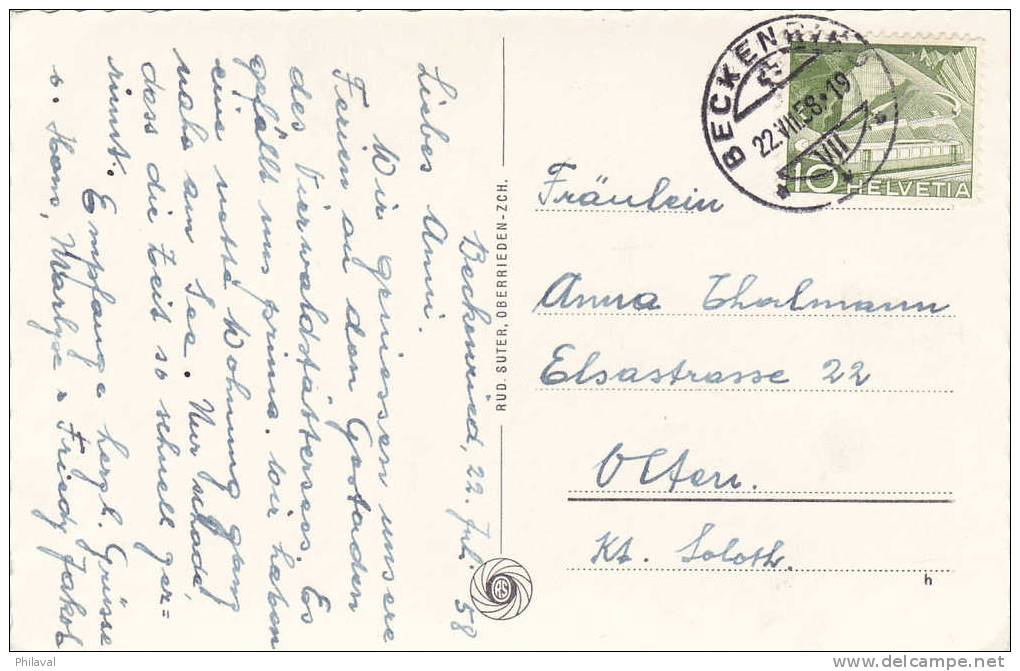 Beckenried, 22. Juli 58
Liebes Anni.
Wir geniessen unsere
Ferien an den Gestaden
des Vierwaldstättersees. Es
gefällt uns prima. Wir haben
eine nette Wohnung ganz
nahe am See. Nur schade,
dass die Zeit so schnell ver=
rinnt. Empfange herzl. Grüsse
v. Hans, Marlys & Friedy Jakob
RUD. SUTER, OBERRIEDEN-ZCH.
RS
BECKENRIED
22.VII.58.19
VII
10 HELVETIA
Fräulein
Anna Thalmann
Elsastrasse 22
Olten.
Kt. Soloth.
h
Philaval
delcampe.net